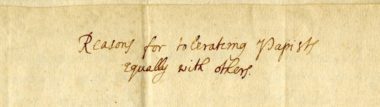 Reasons for tolerateing Papists
equally with others.